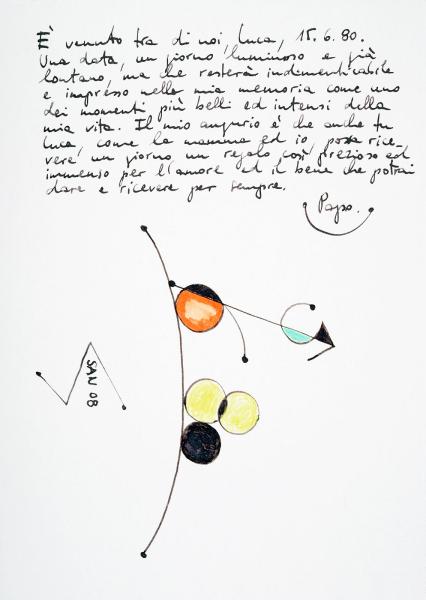 È venuto tra di noi, Luca, 15.6.80.
Una data, un giorno luminoso e già
lontano, ma che resterà indimenticabile
e impresso nella mia memoria come uno
dei momenti più belli ed intensi della
mia vita. Il mio augurio è che anche tu
Luca, come la mamma ed io, possa rice-
vere un giorno un regalo così prezioso ed
immenso per l'amore ed il bene che potrai
dare e ricevere per sempre.
Papo.
SAN 08